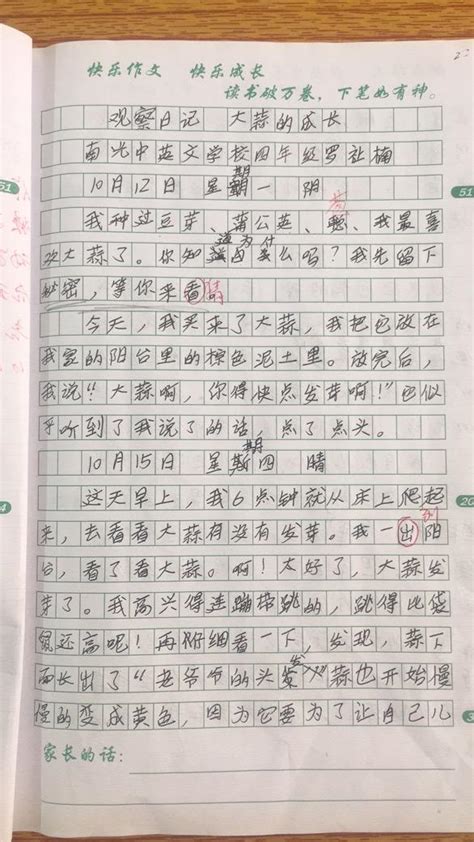 快乐作文 快乐成长
读书破万卷,下笔如有神。
观察日记 大蒜的成长
南光中英文学校四年级罗祉楠
10月12日 星期一 阴
我种过豆芽、蒲公英、葱、我最喜
欢大蒜了。你知道为什么吗?我先留下
秘密,等你来猜。
今天,我买来了大蒜,我把它放在
我家的阳台里的棕色泥土里。放完后,
我说“大蒜啊,你得快点发芽啊!”它似
乎听到了我说了的话,点了点头。
10月15日 星期四 晴
这天早上,我6点钟就从床上爬起
来,去看看大蒜有没有发芽。我一出阳
到
台,看了看大蒜。啊!太好了,大蒜发
芽了。我高兴得连蹦带跳的,跳得比袋
鼠还高呢!再仔细看一下,发现,蒜下
面长出了“老爷爷的头发”蒜也开始慢
慢的变成黄色,因为它要为了让自己儿
家长的话:
51
20